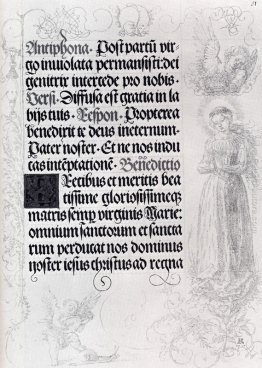 Antiphona. Post partū vir-
go inuiolata permansisti: dei
genitrix intercede pro nobis.
Versi. Diffusa est gratia in la
bijs tuis. Respon. Propterea
benedixit te deus ineternum.
Pater noster. Et ne nos indu
cas intēptationē. Benedictio
Precibus et meritis bea
tissime gloriosissimeqꝫ
matris semp virginis Marie:
omnium sanctorum et sancta
rum perducat nos dominus
noster iesus christus ad regna